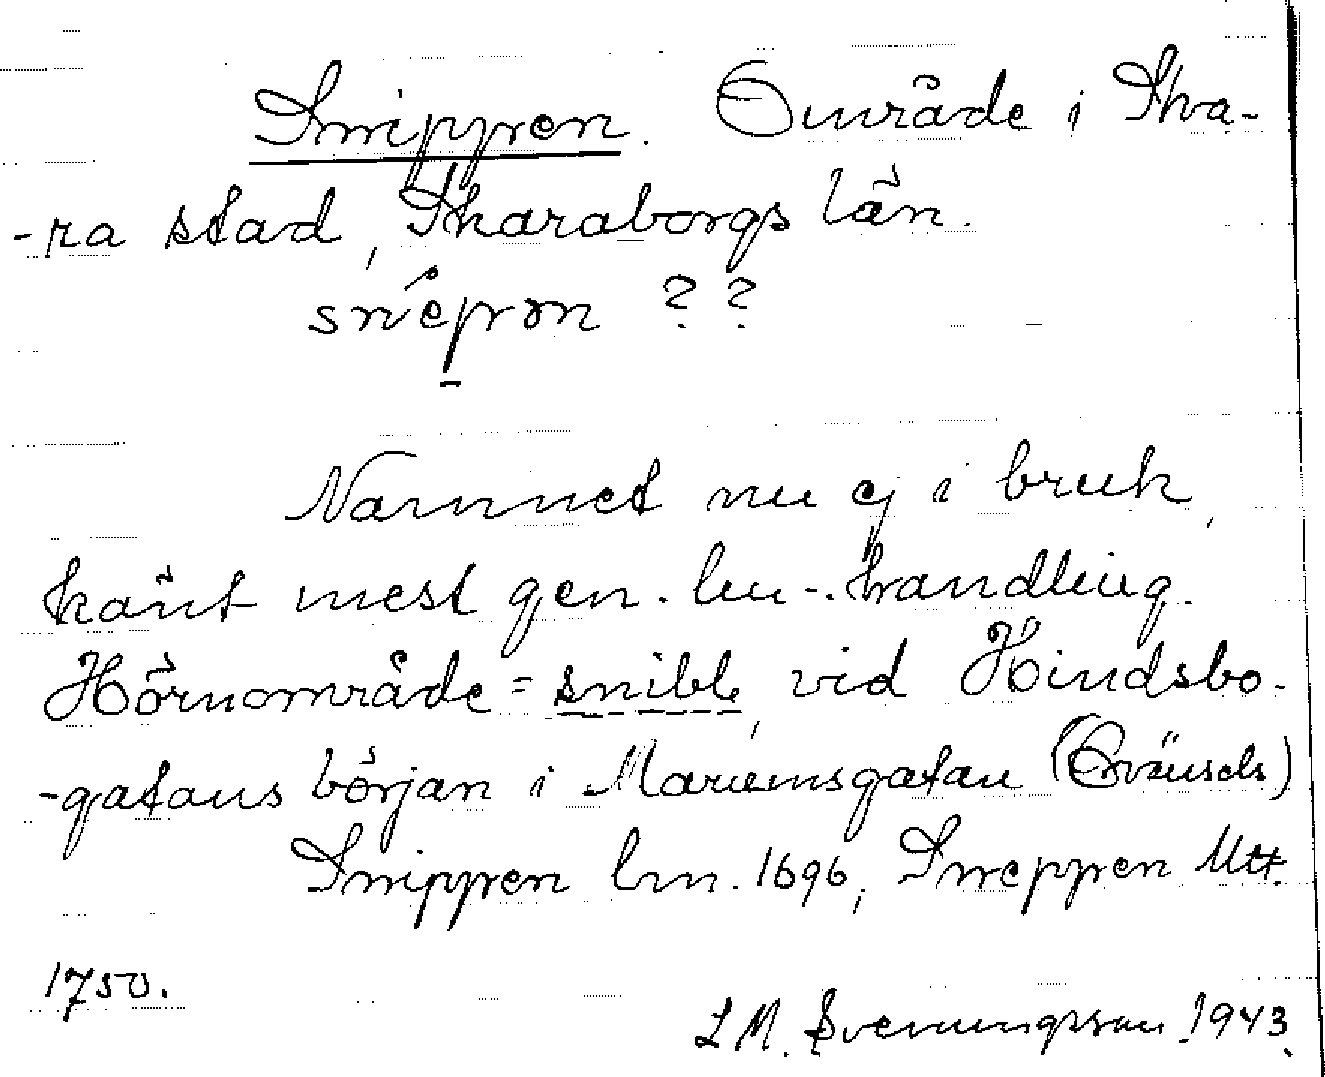 Snippen. Område i Ska-
-ra stad, Skaraborgs län.
snepən ??
Namnet nu ej i bruk,
känt mest gen. lm-handling.
Hörnområde = snibb, vid Hindsbo-
-gatans början i Mariemsgatan
Snippen lm. 1696, Sneppen Utt.
1750.
L M. Svenungsson 1943.